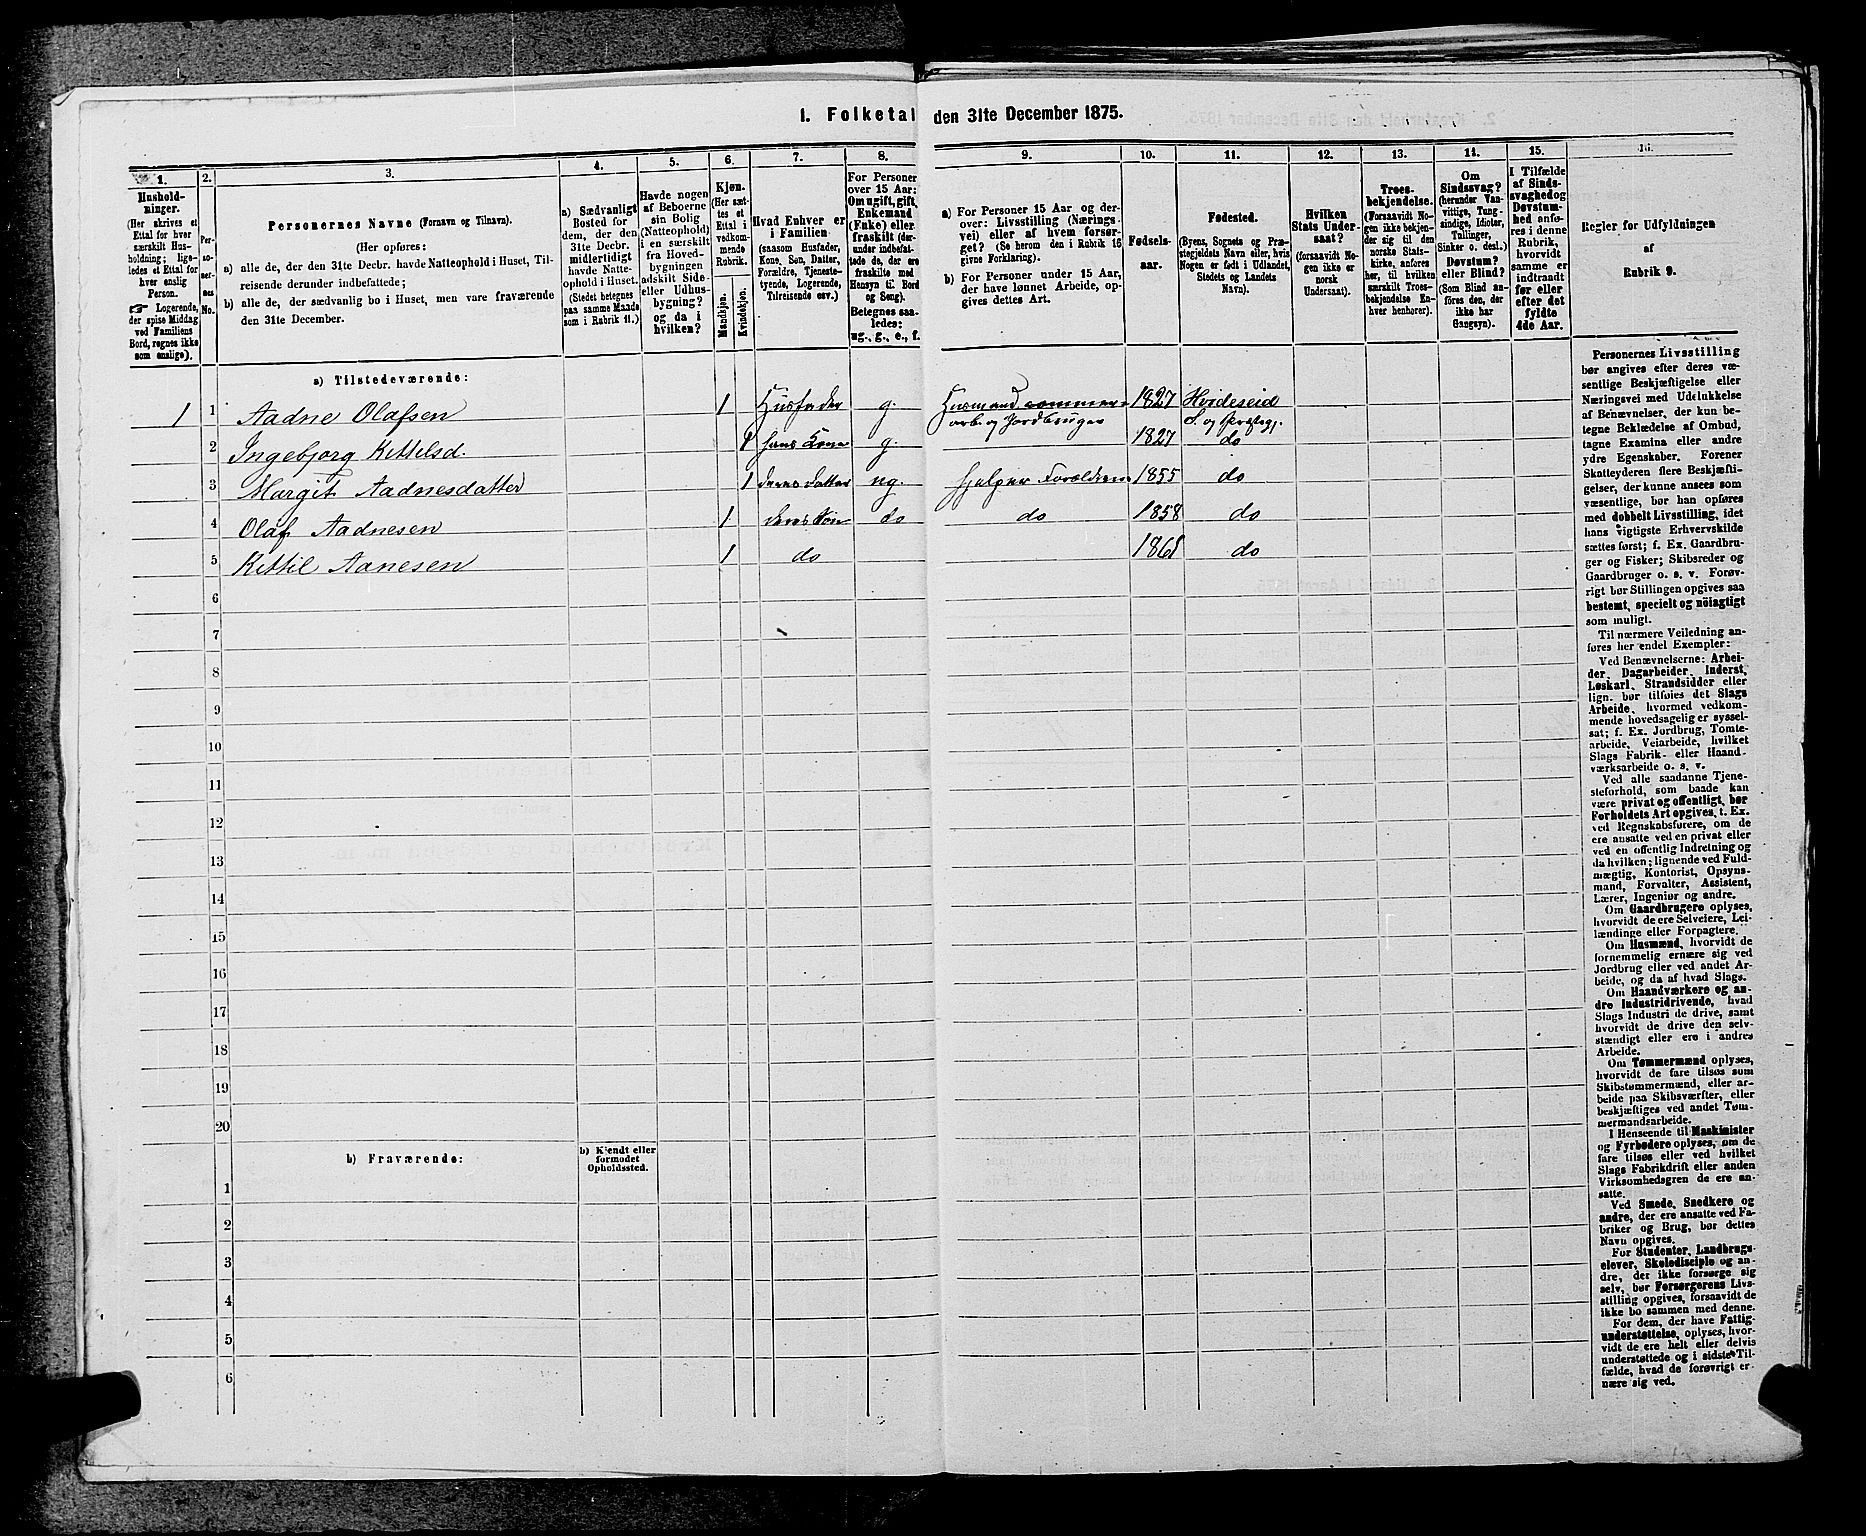 1. Folketal den 31te December 1875.
1.
Hushold-
ninger.
(Her skrives et
Ettal for hver
særskilt Hus-
holdning; lige-
ledes et Ettal for
hver enslig
Person.
☞ Logerende,
der spise Middag
ved Familiens
Bord, regnes ikke
som enslige).
2.
Per-
so-
ner-
nes
No.
3.
Personernes Navne (Fornavn og Tilnavn).
(Her opføres:
a) alle de, der den 31te Decbr. havde Natteophold i Huset, Til-
reisende derunder indbefattede;
b) alle de, der sædvanlig bo i Huset, men vare fraværende
den 31te December.
4.
a) Sædvanligt
Bosted for
dem, der den
31te Decbr.
midlertidigt
havde Natte-
ophold i Huset.
(Stedet betegnes
paa samme Maade
som i Rubrik 11.)
5.
Havde nogen
af Beboerne
sin Bolig
(Natteophold)
i en særskilt
fra Hoved-
bygningen
adskilt Side-
eller Udhus-
bygning?
og da i
hvilken?
6.
Kjøn.
(Her sæt-
tes et
Ettal i
vedkom-
mende
Rubrik.
Mandkjøn.
Kvindekjøn.
7.
Hvad Enhver er
i Familien
(saasom Husfader,
Kone, Søn, Datter,
Forældre, Tjeneste-
tyende, Logerende,
Tilreisende osv.)
8.
For Personer
over 15 Aar:
Om ugift, gift,
Enkemand
(Enke) eller
fraskilt (der-
under indbefat-
tede de, der ere
fraskilte med
Hensyn til Bord
og Seng).
Betegnes saa-
ledes:
ug., g., e., f.
9.
a) For Personer 15 Aar og der-
over: Livsstilling (Nærings-
vei) eller af hvem forsør-
get? (Se herom den i Rubrik 16
givne Forklaring).
b) For Personer under 15 Aar,
der have lønnet Arbeide, op-
gives dettes Art.
10.
Fødsels-
aar.
11.
Fødested.
(Byens, Sognets og Præ-
stegjeldets Navn eller, hvis
Nogen er født i Udlandet,
Stedets og Landets
Navn).
12.
Hvilken
Stats Under-
saat?
(forsaavidt No-
gen ikke er
norsk
Undersaat).
13.
Troes-
bekjendelse.
(Forsaavidt No-
gen ikke bekjen-
der sig til den
norske Stats-
kirke, anføres
her, til hvilken
særskilt Troes-
bekjendelse En-
hver henhører).
14.
Om
Sindssvag?
(herunder Van-
vittige, Tung-
sindige, Idioter,
Tullinger,
Sinker o. desl.)
Døvstum?
eller Blind?
(Som Blind an-
føres den, der
ikke har
Gangsyn).
15.
I Tilfælde
af Sinds-
svaghed og
Døvstum-
hed anfø-
res i denne
Rubrik,
hvorvidt
samme er
indtraadt
før eller
efter det
fyldte
4de Aar.
16.
Regler for Udfyldningen
af
Rubrik 9.
a) Tilstedeværende:
1 1 Aadne Olafsen 1 Husfader g. Husmand 1827 Hvideseid
arb. og Jordbruger S. og Præstegj.
2 Ingebjorg Kittilsd. 1 hans Kone g. 1827 do
3 Margit Aadnesdatter 1 deres datter ug. hjælper Forældrene 1855 do
4 Olaf Aadnesen 1 deres Søn do do 1858 do
5 Kittil Aanesen 1 do 1868 do
6
7
8
9
10
11
12
13
14
15
16
17
18
19
20
b) Fraværende:
b) Kjendt eller
formodet
Opholdssted.
1
2
3
4
5
6
Personernes Livsstilling
bør angives efter deres væ-
sentlige Beskjæftigelse eller
Næringsvei med Udelukkelse
af Benævnelser, der kun be-
tegne Beklædelse af Ombud,
tagne Examina eller andre
ydre Egenskaber. Forener
Skatteyderen flere Beskjæfti-
gelser, der kunne ansees som
væsentlige, bør han opføres
med dobbelt Livsstilling, idet
hans vigtigste Erhvervskilde
sættes først; f. Ex. Gaardbru-
ger og Fisker; Skibsreder og
Gaardbruger o. s. v. Forøv-
rigt bør Stillingen opgives saa
bestemt, specielt og nöiagtigt
som muligt.
Til nærmere Veiledning an-
føres her endel Exempler:
Ved Benævnelserne: Arbei-
der, Dagarbeider, Inderst,
Løskarl, Strandsidder eller
lign. bør tilføies det Slags
Arbeide, hvormed vedkom-
mende hovedsagelig er syssel-
sat; f. Ex. Jordbrug, Tomte-
arbeide, Veiarbeide, hvilket
Slags Fabrik- eller Haand-
værksarbeide o. s. v.
Ved alle saadanne Tjene-
steforhold, som baade kan
være privat og offentligt, bør
Forholdets Art opgives, t. Ex.
ved Regnskabsførere, om de
ere ansatte ved en privat eller
ved en offentlig Indretning og
da hvilken; lignende ved Fuld-
mægtig, Kontorist, Opsyns-
mand, Forvalter, Assistent,
Lærer, Ingeniør og andre.
Om Gaardbrugere oplyses,
hvorvidt de ere Selveiere, Lei-
lændinge eller Forpagtere.
Om Husmænd, hvorvidt de
fornemmelig ernære sig ved
Jordbrug eller ved andet Ar-
beide, og da af hvad Slags.
Om Haandværkere og an-
dre Industridrivende, hvad
Slags Industri de drive, samt
hvorvidt de drive den selv-
stændigt eller ere i andres
Arbeide.
Om Tømmermænd oplyses,
hvorvidt de fare tilsøs som
Skibstømmermænd, eller ar-
beide paa Skibsværfter, eller
beskjæftiges ved andet Tøm-
mermandsarbeide.
I Henseende til Maskinister
og Fyrbødere oplyses, om de
fare tilsøs eller ved hvilket
Slags Fabrikdrift eller anden
Virksomhedsgren de ere an-
satte.
Ved Smede, Snedkere og
andre, der ere ansatte ved Fa-
briker og Brug, bør dettes
Navn opgives.
For Studenter, Landbrugs-
elever, Skoledisciple og an-
dre, der ikke forsørge sig
selv, bør Forsørgerens Livs-
stilling opgives, forsaavidt de
ikke bo sammen med denne.
For dem, der have Fattig-
understøttelse, oplyses, hvor-
vidt de ere helt eller delvis
understøttede og i sidste Til-
fælde, hvad de forøvrigt er-
nære sig ved.